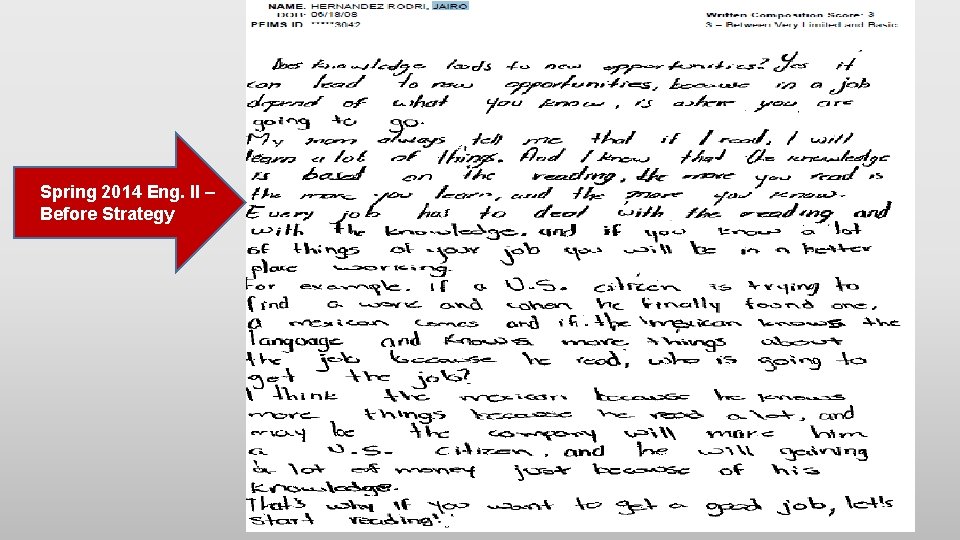 NAME: HERNANDEZ RODRI, JAIRO
DOB: 06/18/98
PEIMS ID: *****3042
Written Composition Score: 3
3 – Between Very Limited and Basic
Spring 2014 Eng. II –
Before Strategy
Does knowledge leads to new opportunities? Yes it
can lead to new opportunities, because in a job
depend of what you know, is where you are
going to go.
My mom always tell me that if I read, I will
learn a lot of things. And I know that the knowledge
is based on the reading, the more you read is
the more you learn, and the more you know.
Every job has to deal with the reading and
with the knowledge. and if you know a lot
of things of your job you will be in a better
place working.
For example. If a U.S. citizen is trying to
find a work and when he finally found one,
a mexican comes and if the mexican knows the
language and knows more things about
the job because he read, who is going to
get the job?
I think the mexican because he knows
more things because he read a lot, and
may be the company will make him
a U.S. citizen, and he will gaining
a lot of money just because of his
knowledge.
That's why if you want to get a good job, let's
start reading!